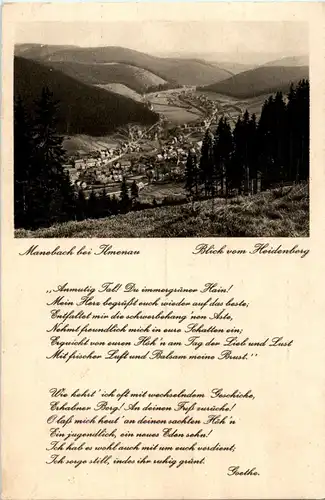 Manebach bei Ilmenau Blick vom Heidenberg
„Anmutig Tal! Du immergrüner Hain!
Mein Herz begrüßt euch wieder auf das beste;
Entfaltet mir die schwerbehang'nen Äste,
Nehmt freundlich mich in eure Schatten ein;
Erquickt von euren Höh'n am Tag der Lieb und Lust
Mit frischer Luft und Balsam meine Brust."
Wie kehrt' ich oft mit wechselndem Geschicke,
Erhabner Berg! An deinen Fuß zurücke!
O laß mich heut' an deinen sachten Höh'n
Ein jugendlich, ein neues Eden sehn!
Ich hab es wohl auch mit um euch verdient;
Ich sorge still, indes ihr ruhig grünt.
Goethe.